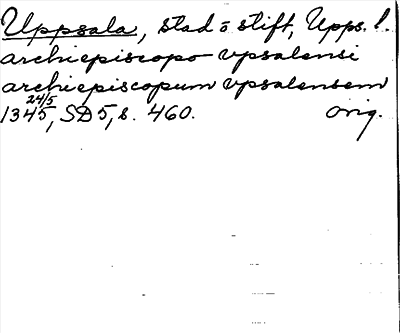 Uppsala, stad o stift, Upps. l.
archiepiscopo vpsalensi
archiepiscopum vpsalensem
1345 24/5, SD 5, s. 460. orig.